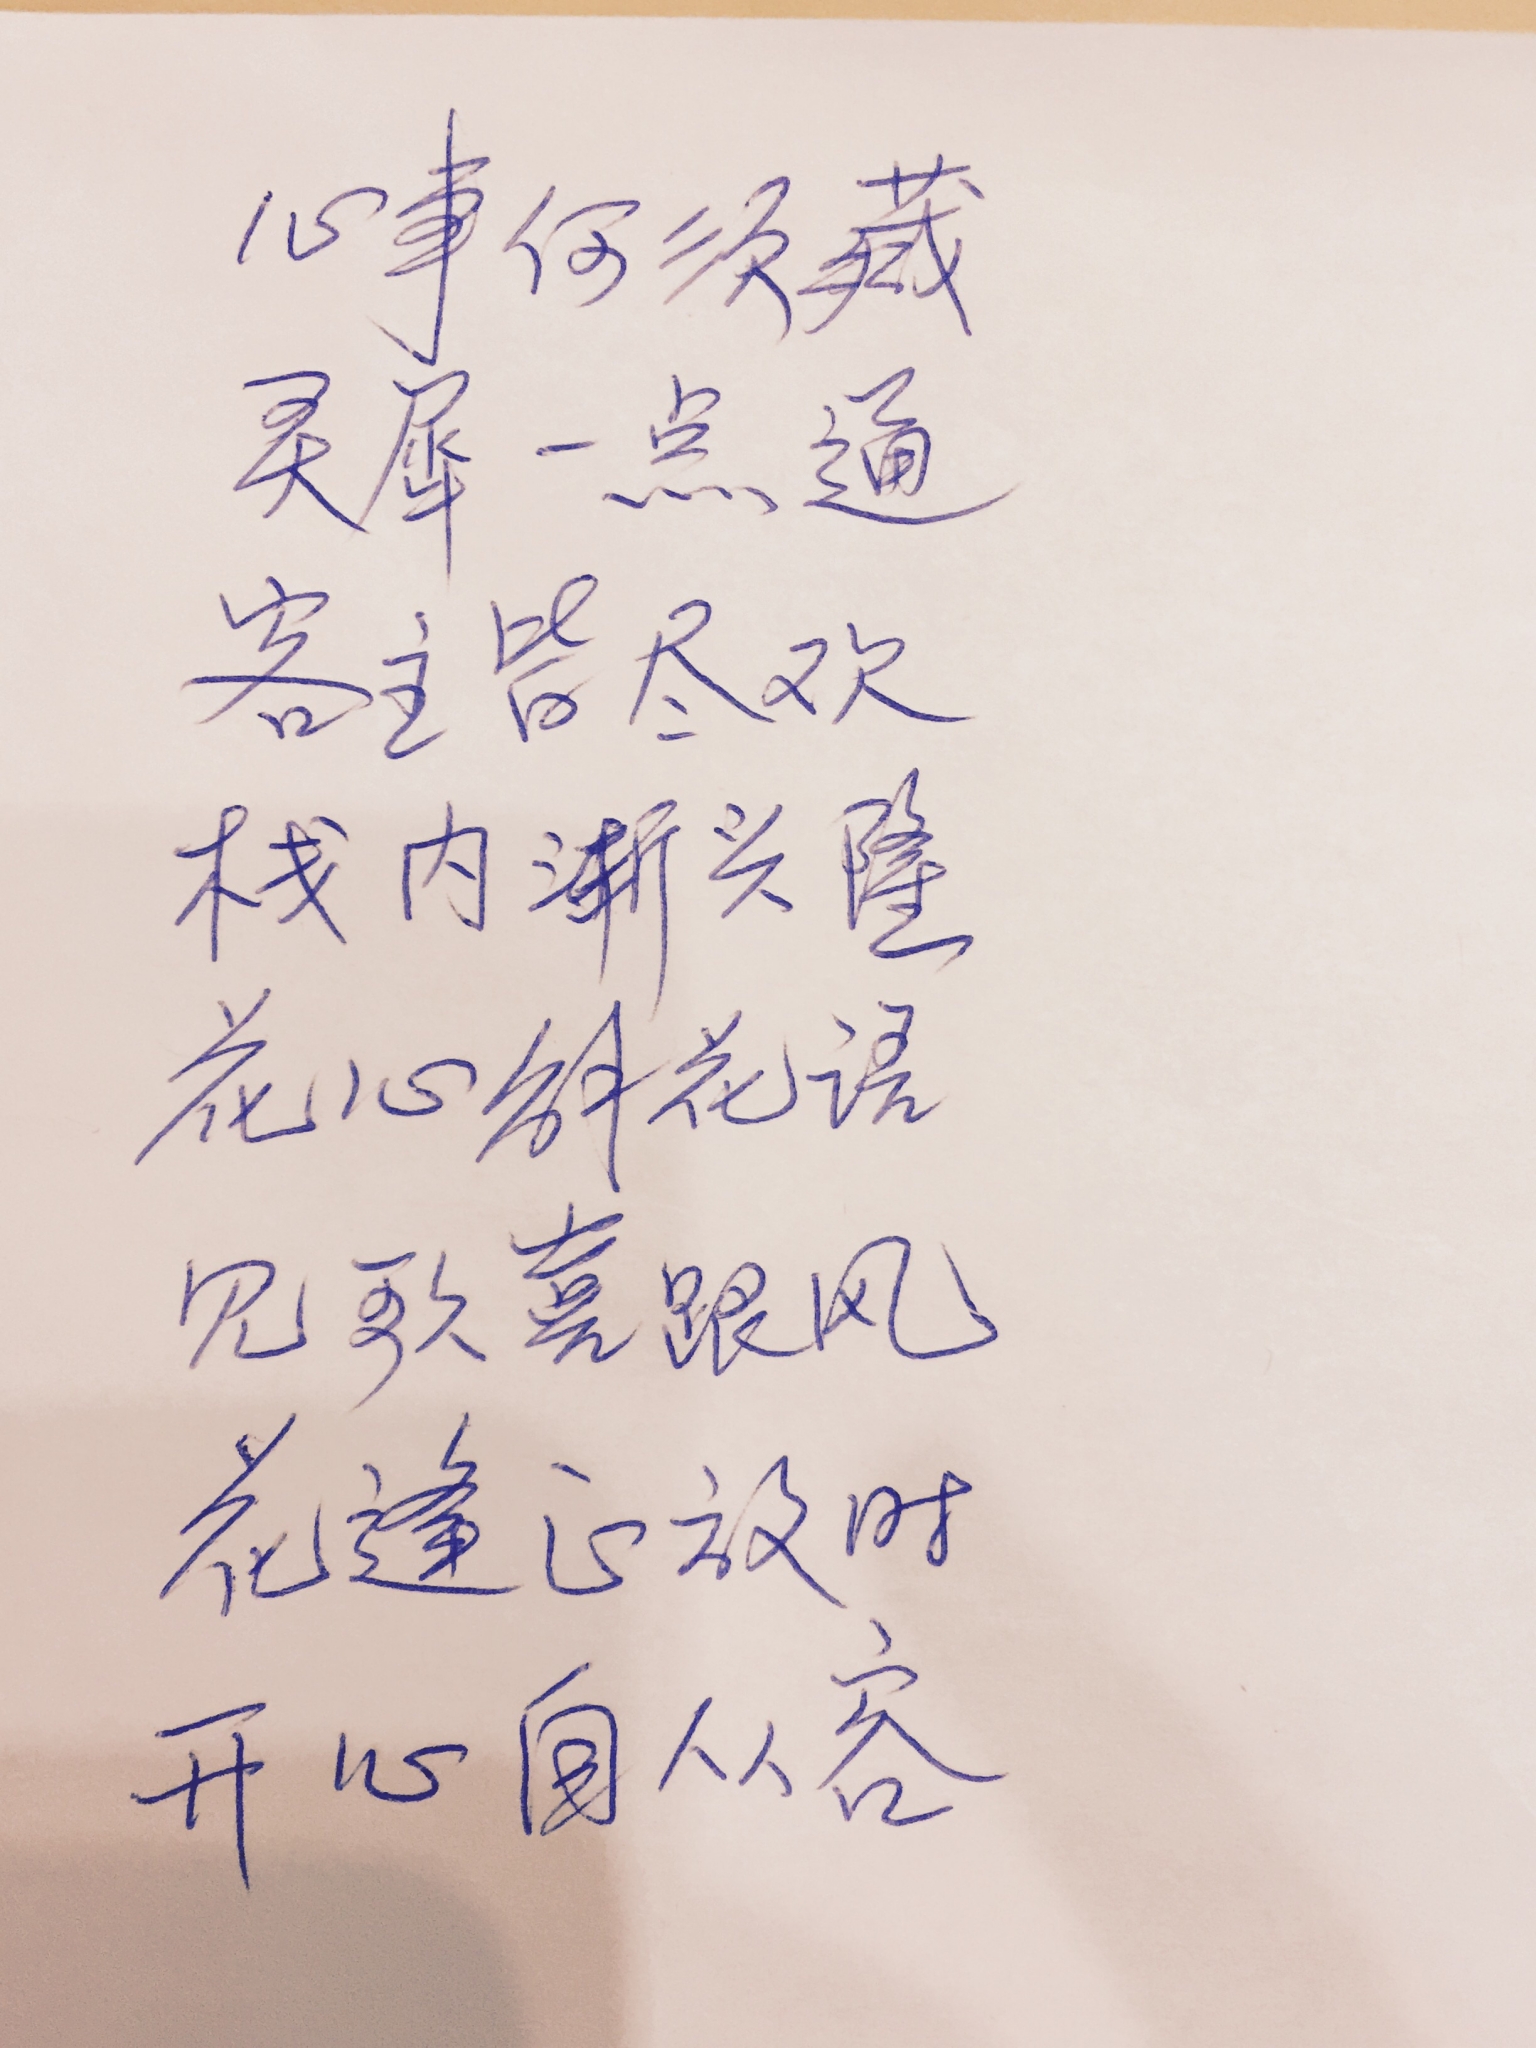 心事何须藏
灵犀一点通
客主皆尽欢
栈内渐兴隆
花心解花语
见歌喜跟风
花逢正放时
开心自从容